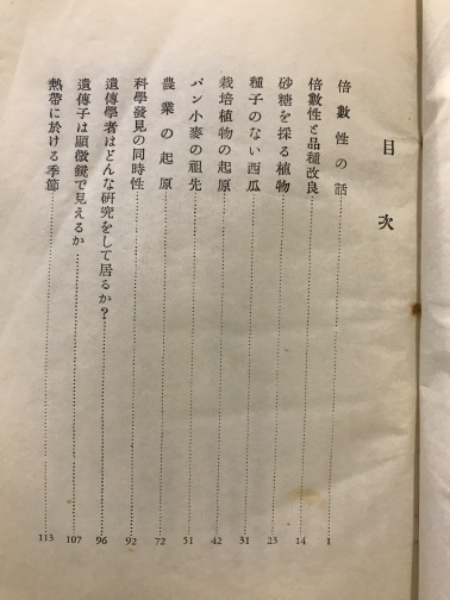 目次
倍數性の話 1
倍數性と品種改良 14
砂糖を採る植物 23
種子のない西瓜 31
栽培植物の起原 42
パン小麥の祖先 51
農業の起原 72
科學發見の同時性 92
遺傳學者はどんな硏究をして居るか? 96
遺傳子は顯微鏡で見えるか 107
熱帶に於ける季節 113